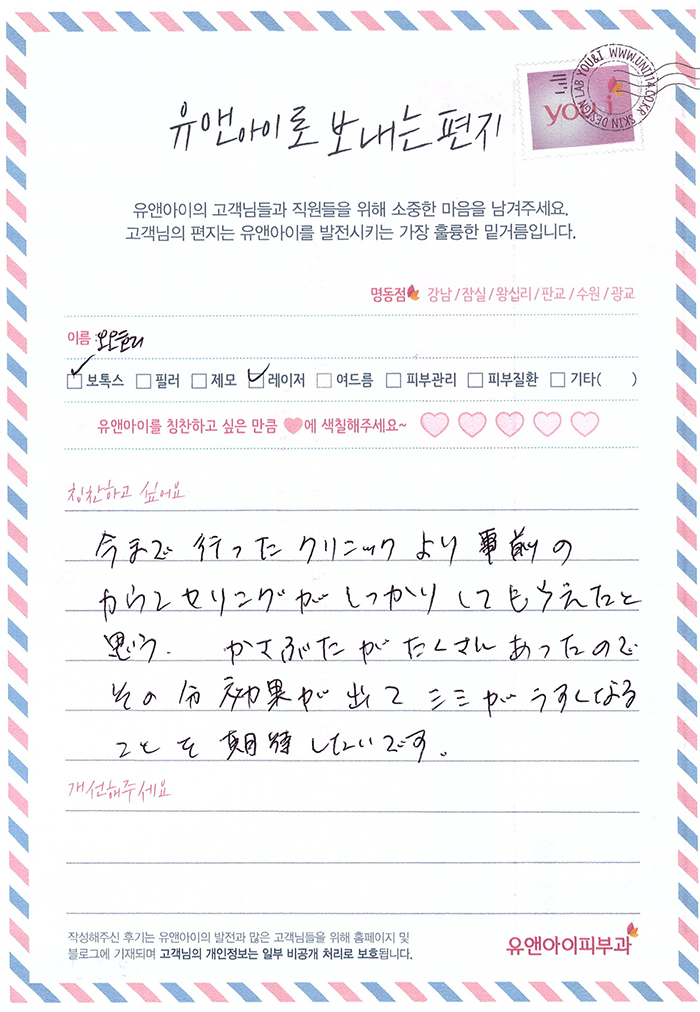 LAB YOU&I WWW.UNI114.CO.KR SKIN DESIGN
you i
유앤아이로 보내는 편지
유앤아이의 고객님들과 직원들을 위해 소중한 마음을 남겨주세요.
고객님의 편지는 유앤아이를 발전시키는 가장 훌륭한 밑거름입니다.
명동점 강남/잠실/왕십리/판교/수원/광교
이름 :
보톡스 필러 제모 레이저 여드름 피부관리 피부질환 기타( )
유앤아이를 칭찬하고 싶은 만큼 에 색칠해주세요~
칭찬하고 싶어요
今まで 行った クリニック より 事前の
カウンセリングが しっかり してもらえたと
思う. かさぶた が たくさん あったので
その分 効果が 出て シミが うすくなる
ことを 期待したいです。
개선해주세요
작성해주신 후기는 유앤아이의 발전과 많은 고객님들을 위해 홈페이지 및
블로그에 기재되며 고객님의 개인정보는 일부 비공개 처리로 보호됩니다.
유앤아이피부과